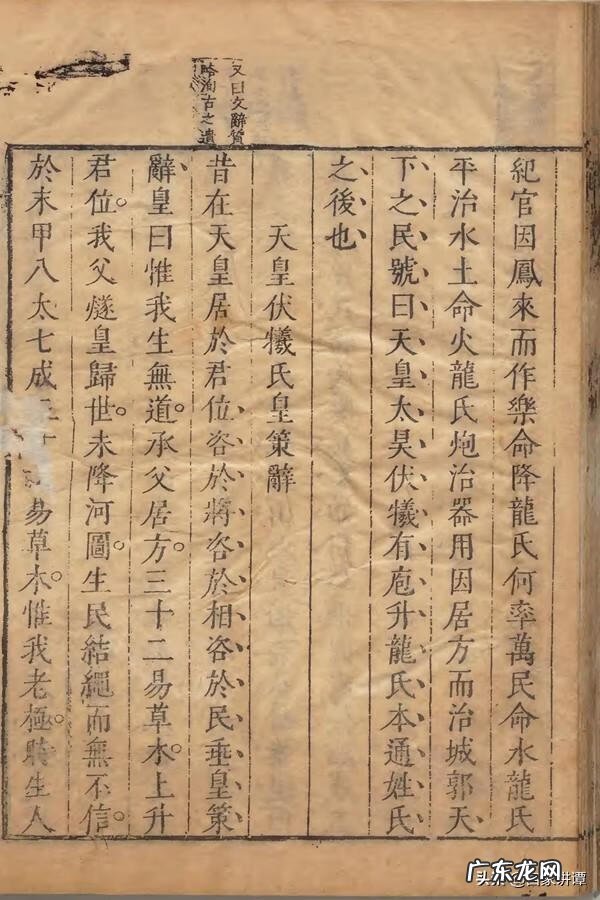 紀官因鳳來而作樂命降龍氏何率萬民命水龍氏
平治水土命火龍氏炮治器用因居方而治城郭天
下之民號曰天皇太昊伏犧有庖升龍氏本通姓氏
之後也
天皇伏犧氏皇策辭
又曰文辭質
洵古之遺
昔在天皇居於君位咨於將咨於相咨於民垂皇策
辭皇曰惟我生無道。承父居方。三十二易草木。上升
君位。我父燧皇歸世。未降河圖。生民結繩而無不信。
於末甲八太七成 易草木。惟我老極。生人
广东龙网